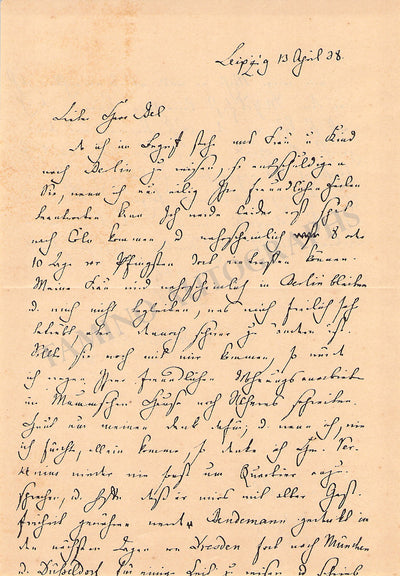 Leipzig 13 April 38.
Lieber Herr
Da ich im Begriff steh mit Frau u Kind
nach Berlin zu reisen, so entschuldigen
Sie, wenn ich nur eilig Ihre freundlichen Zeilen
beantworten kann Ich werde leider erst spät
nach Cöln kommen, u wahrscheinlich nur 8 oder
10 Tage vor Pfingsten dort eintreffen können.
Meine Frau wird wahrscheinlich in Berlin bleiben
u. mich nicht begleiten, was mich freilich sehr
aber dennoch schwer zu ändern ist.
Sollte sie noch mit mir kommen, so würde
ich wegen Ihres freundlichen
im Hause noch Näheres schreiben.
meinen Dank dafür; u wenn ich, wie
ich fürchte, allein komme, so denke ich Hrn. Ver-
wieder wie sonst um Quartier anzu-
sprechen, u. hoffe daß er mirs mit alter Gast-
freiheit gewähren wird. Bendemann gedenkt in
den nächsten Tagen von Dresden fort nach München
u. Düsseldorf für einige Zeit zu reisen u
TAMINO AUTOGRAPHS